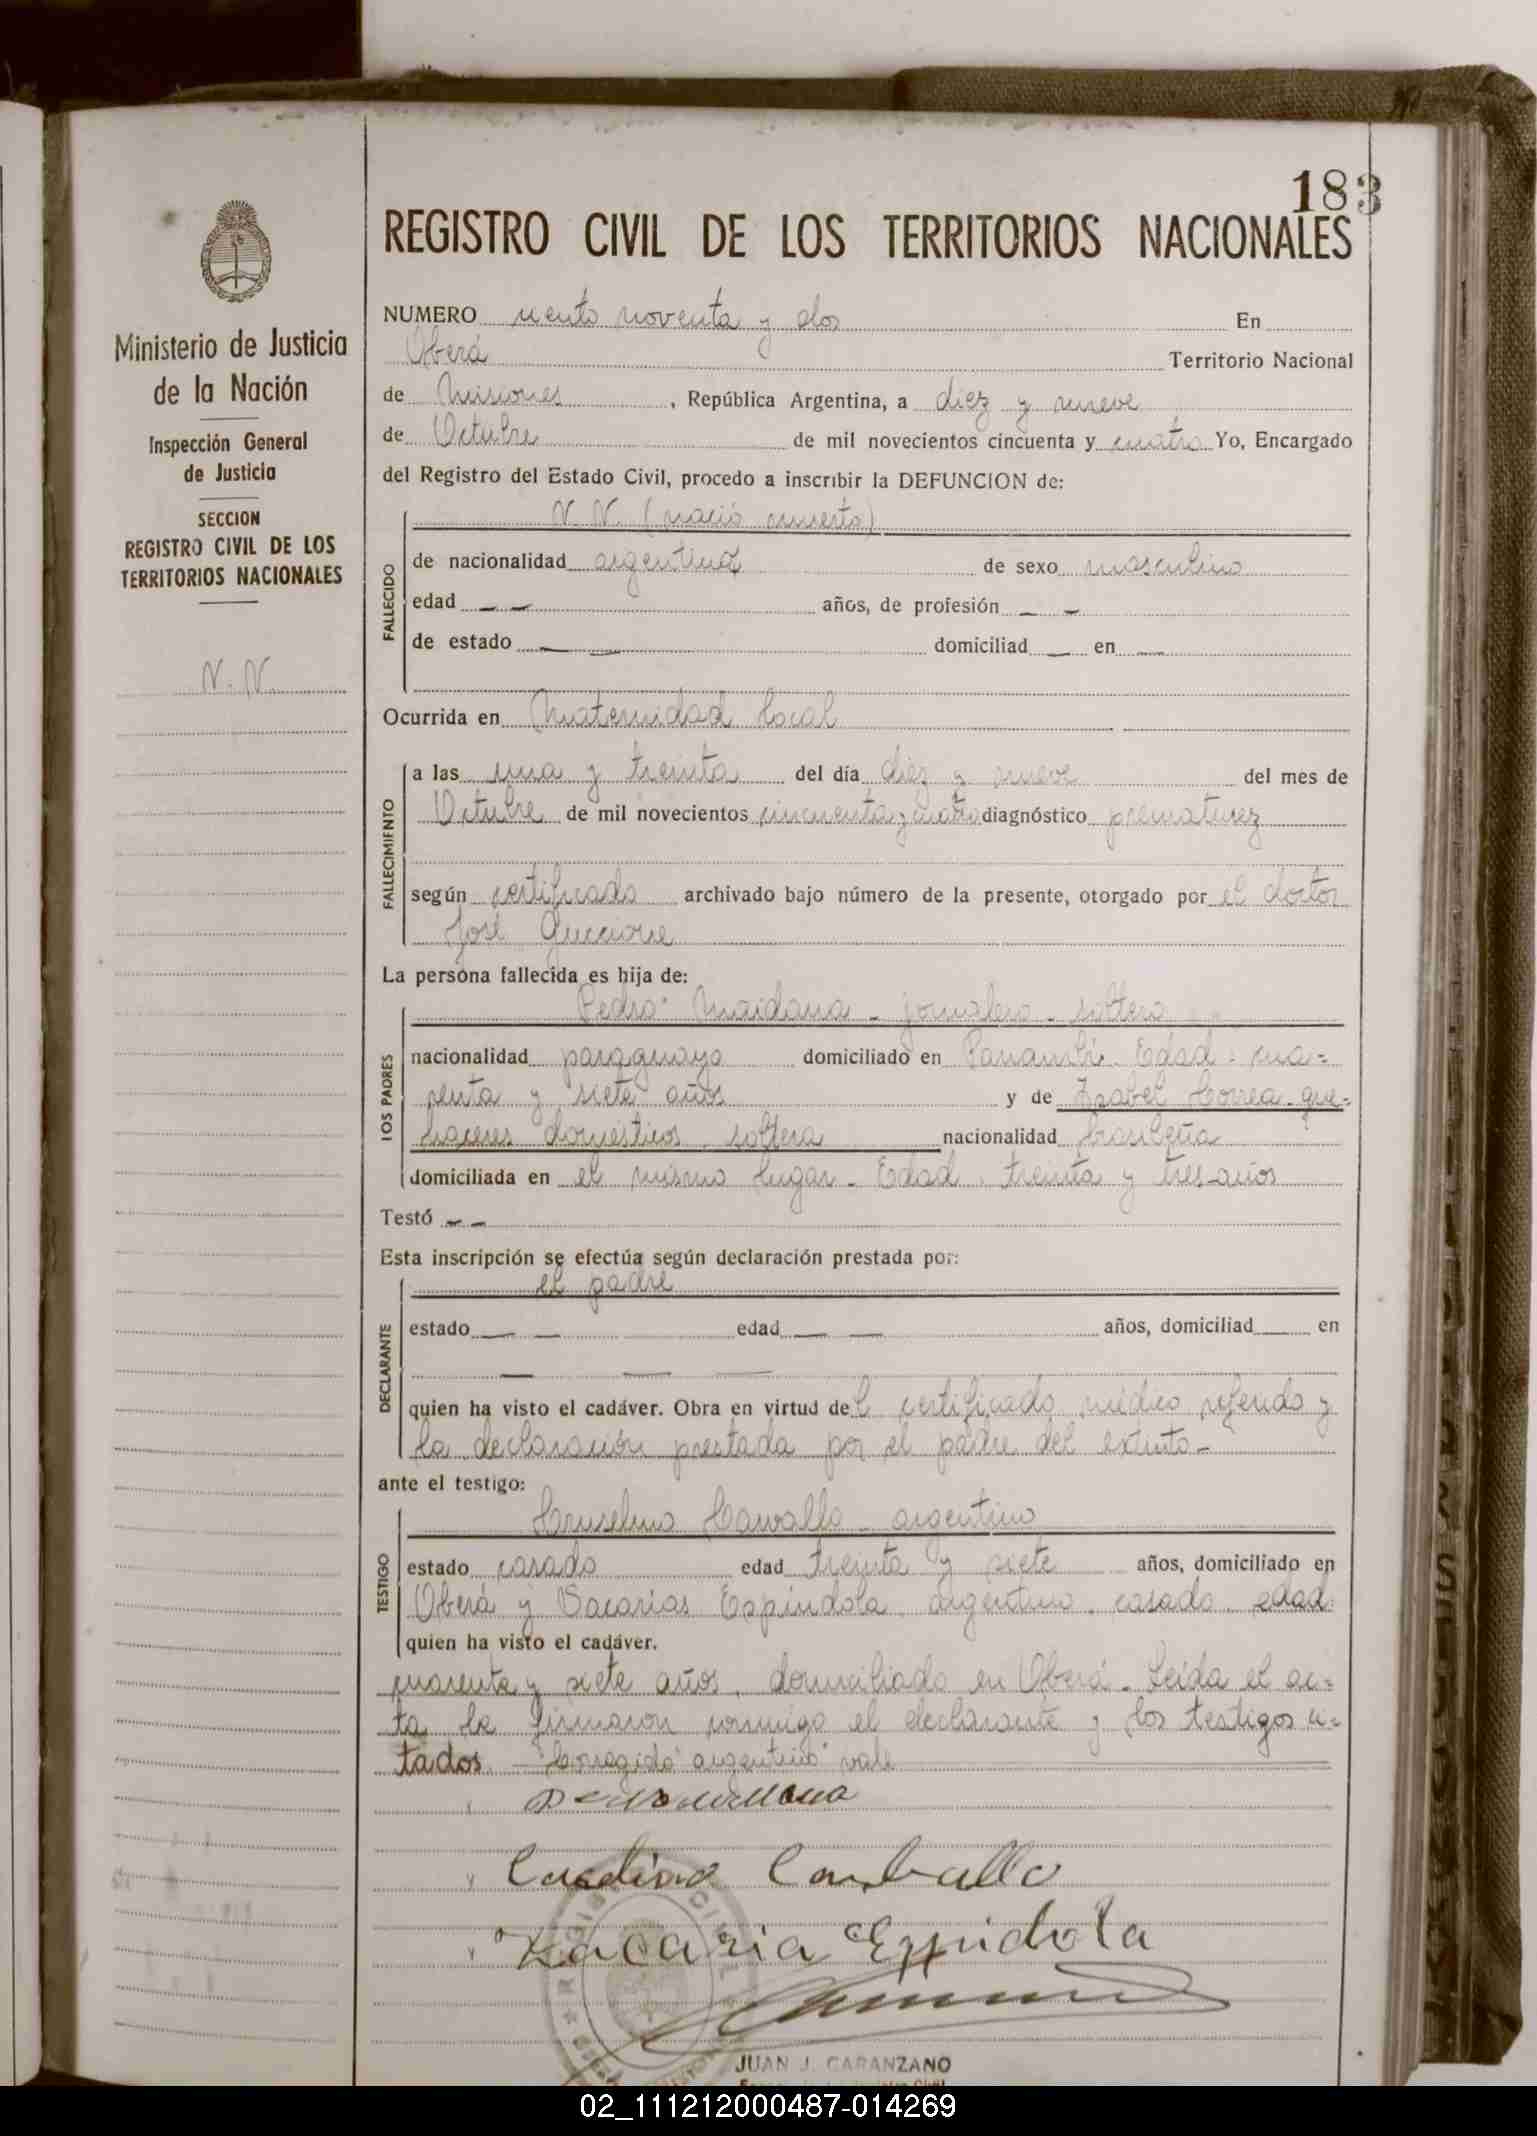 183
REGISTRO CIVIL DE LOS TERRITORIOS NACIONALES
Ministerio de Justicia
de la Nación
Inspección General
de Justicia
SECCION
REGISTRO CIVIL DE LOS
TERRITORIOS NACIONALES
N. N.
NUMERO ciento noventa y dos En
Oberá Territorio Nacional
de Misiones, República Argentina, a diez y nueve
de Octubre de mil novecientos cincuenta y cuatro Yo, Encargado
del Registro del Estado Civil, procedo a inscribir la DEFUNCION de:
FALLECIDO
N. N. (nació muerto)
de nacionalidad argentina de sexo masculino
edad — — años, de profesión — —
de estado — — domiciliad — en —
Ocurrida en Maternidad local
FALLECIMIENTO
a las una y treinta del día diez y nueve del mes de
Octubre de mil novecientos cincuenta y cuatro diagnóstico prematurez
según certificado archivado bajo número de la presente, otorgado por el doctor
José Guccione
La persona fallecida es hija de:
LOS PADRES
Pedro Maidana - jornalero - soltero
nacionalidad paraguayo domiciliado en Panambí. Edad: cua=
renta y siete años y de Isabel Correa - que=
haceres domésticos - soltera nacionalidad brasileña
domiciliada en el mismo lugar - Edad, treinta y tres años
Testó — —
Esta inscripción se efectúa según declaración prestada por:
DECLARANTE
el padre
estado — — edad — — años, domiciliad — en
— — —
quien ha visto el cadáver. Obra en virtud del certificado médico referido y
la declaración prestada por el padre del extinto -
ante el testigo:
TESTIGO
Carvallo - argentino
estado casado edad treinta y siete años, domiciliado en
Oberá y Espíndola, argentino, casado, edad
quien ha visto el cadáver.
cuarenta y siete años, domiciliado en Oberá - Leída el ac=
ta la firmaron conmigo el declarante y los testigos ci=
tados. - Corregido "argentino" vale
Carballo
Zacaria Espidola
JUAN J. CARANZANO
02_111212000487-014269